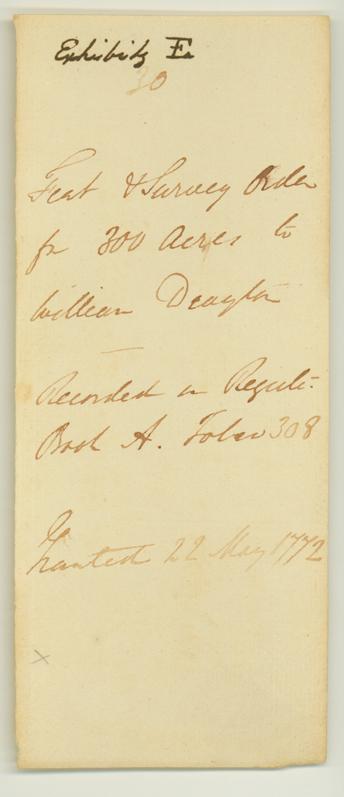 Exhibit E
30
Fiat & Survey Order
for 300 Acres to
William Drayton
Recorded in Registr.
Book A. Folio 308
Granted 22 May 1772
x